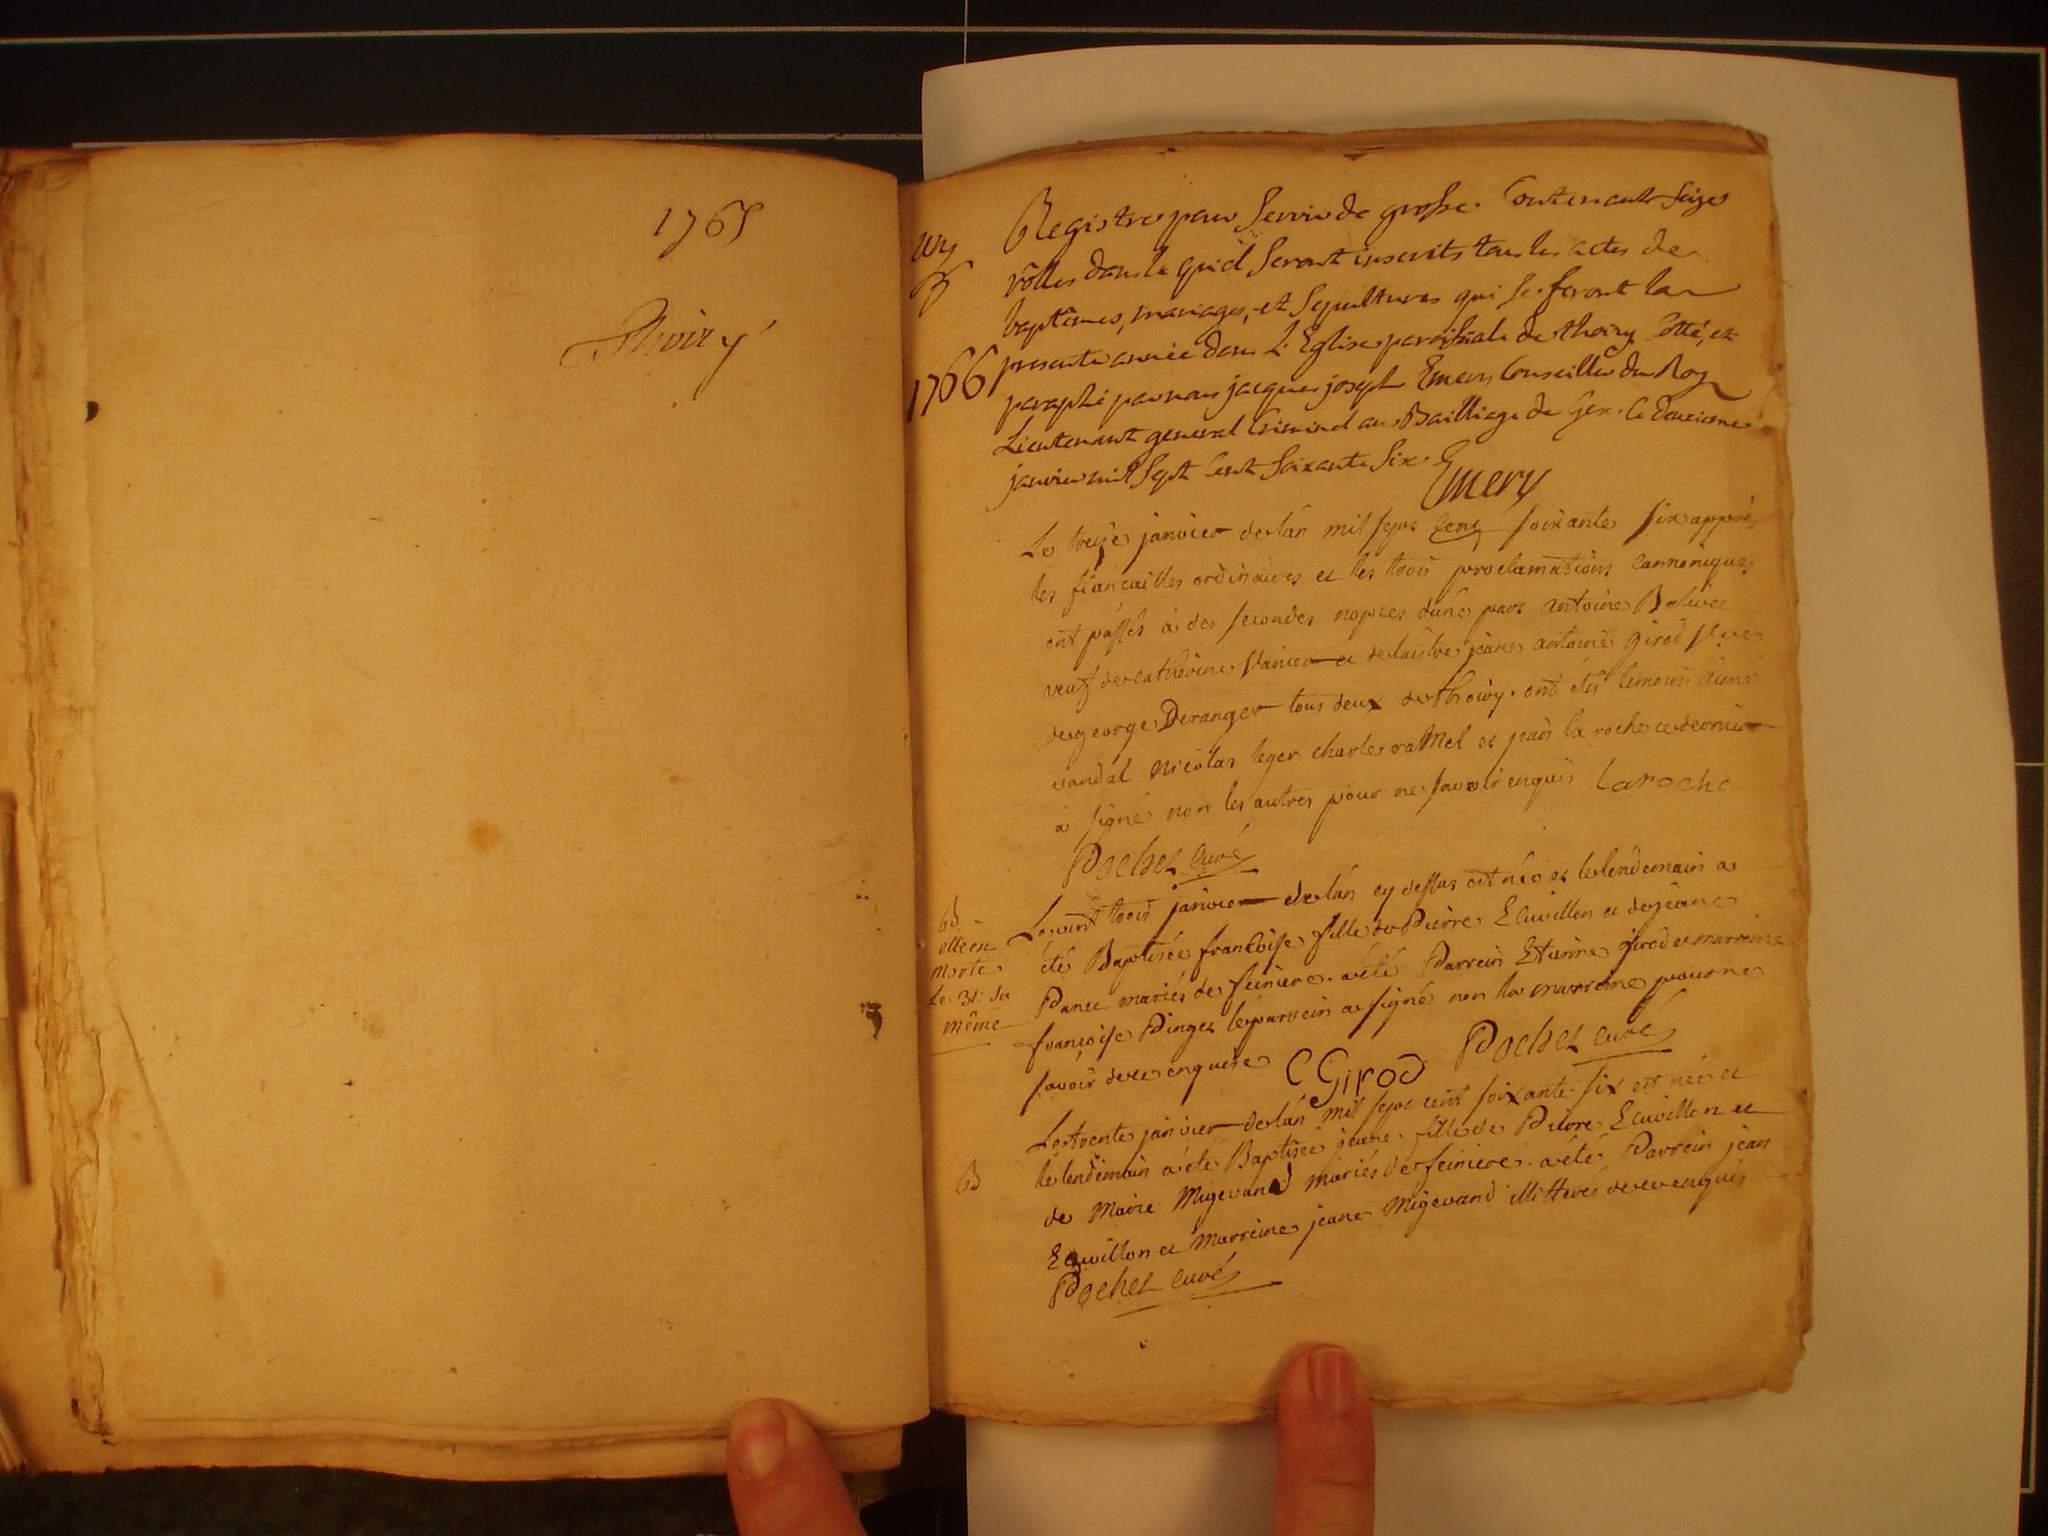 1765
Thoiry
un
1766
Registre pour servir de grosse Contenant seize
rôlles dans le quel seront inscrits tous les actes de
baptêmes, mariages, et sepultures qui se feront la
presente année dans L'Eglise paroissiale de thoiry Cotté, et
paraphé par nous jacques joseph Emery Conseiller du Roy
Lieutenant general Criminel au Bailliage de Gex. le deuxieme
janvier mil sept Cent soixante six.
Emery
Le treize janvier de lán mil sept cent soixante six appres
les fiancailles ordinaires et les trois proclamations cannoniques
ont passés à des secondes nopces dúne part antoine
veuf de catherine et de láutre jeane antoine girod
de george Deranger tous deux de thoiry. ont étés temoins
vandal nicolas leger charle et la roche ce dernier
a signé non les autres pour ne savoir enquis Laroche
Pochet curé
B
elle est
morte
Le 31. du
même
Le vint trois janvier de lán cy dessus est née et le lendemain a
été Baptisée francoise fille de Pierre Ecuvillon et de jeane
Panet mariés de feniere. a été Parrein Etienne girod et marreine
francoise Pinget le parrein a signé non la marreine pour ne
savoir de ce enquise C Girod Pochet curé
B
Le trente janvier de lán mil sept cent soixante six est née et
le lendemain a été Baptisée jeane fille de Pierre Ecuvillon et
de Marie Migevand mariés de feniere. a été Parrein jean
Ecuvillon et Marreine jeane Migevand illitterés de ce enquis
Pochet curé